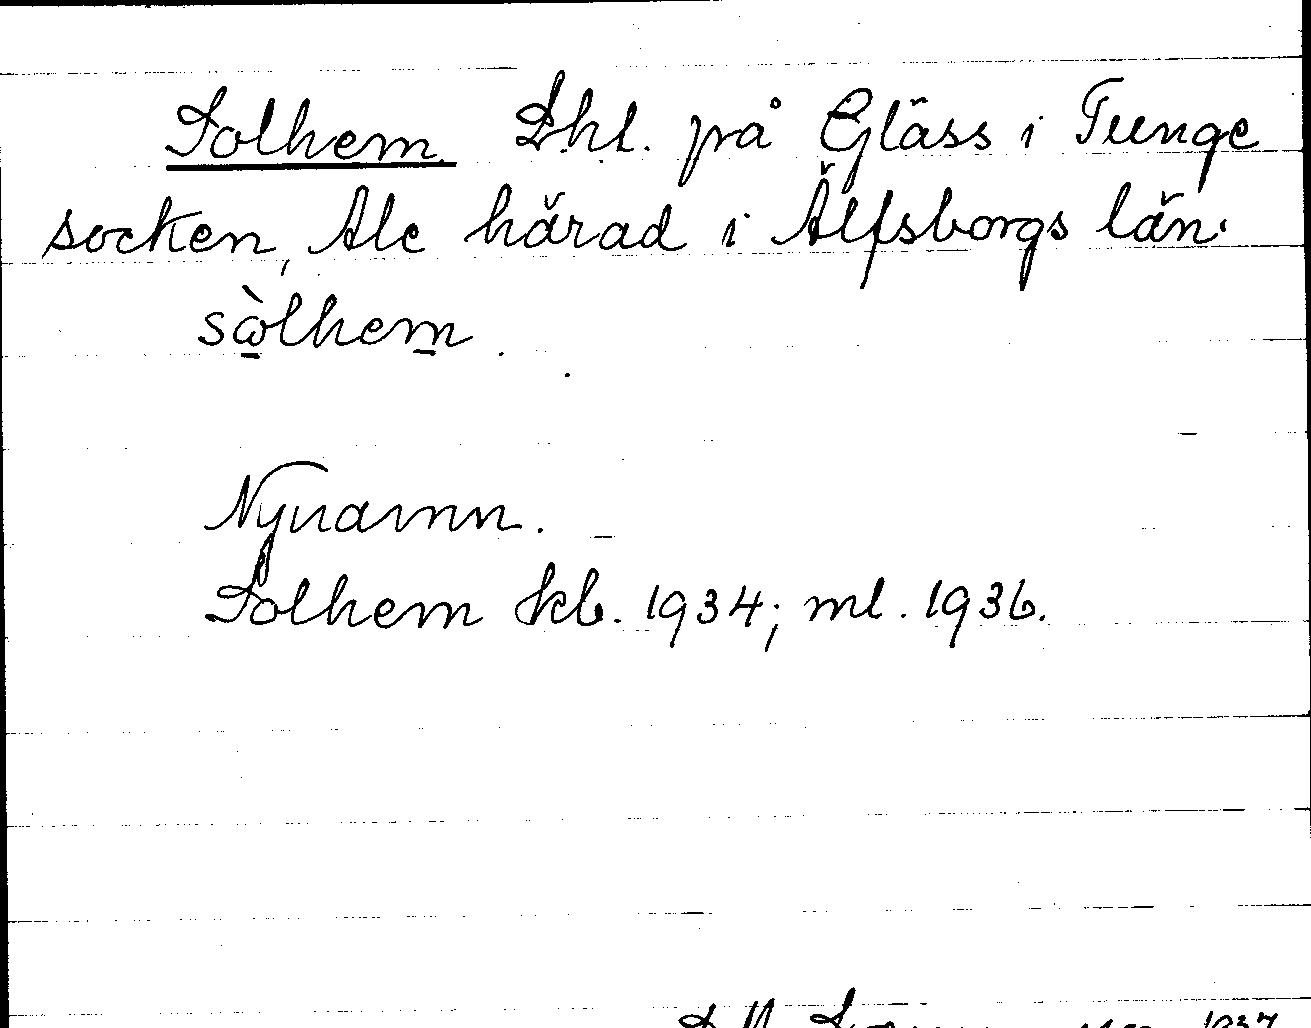 Solhem. Lht. på Gläss i Tunge
socken, Ale härad i Älfsborgs län.
sòlhem.
Nynamn.
Solhem kb. 1934; ml. 1936.
1937